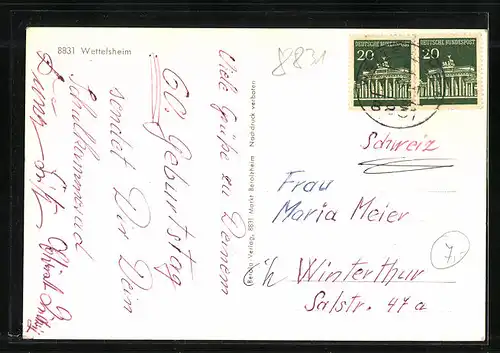 8831 Wettelsheim
8831
DEUTSCHE BUNDESPOST
20
DEUTSCHE BUNDESPOST
20
Viele Grüße zu Deinem
60. Geburtstag
sendet Dir Dein
Schulkamerad
Verlag, 8831 Markt Berolzheim Nachdruck verboten
Schweiz
Frau
Maria Meier
Winterthur
Salstr. 47a
7,-